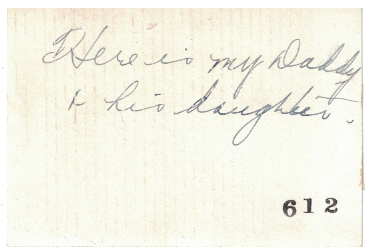 Here is my Daddy
& his daughter.
612